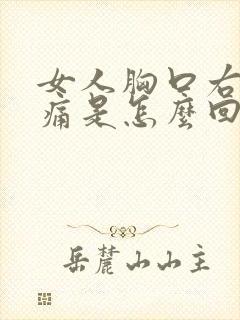 女人胸口右
痛是怎麼回
岳麓山山主